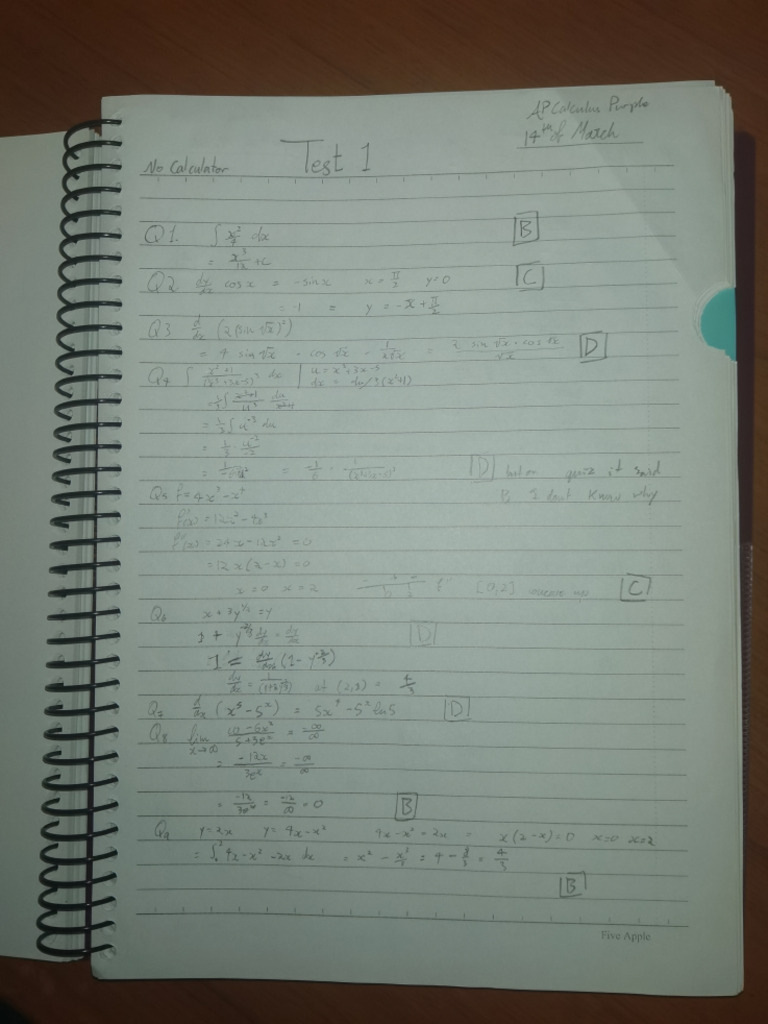 AP Calculus Purple
14th of March
No Calculator Test 1
Q1. ∫ x²/4 dx B
= x³/12 + C
Q2 dy/dx cos x = -sin x x = π/2 y=0 C
= -1 = y = -x + π/2
Q3 d/dx (2(sin √x)²)
= 4 sin √x · cos √x · 1/2√x = 2 sin √x · cos √x / √x D
Q4 ∫ x²+1/(x³+3x-5)³ dx | u = x³+3x-5
dx = du/3(x²+1)
= 1/3 ∫ x²+1/u³ du/x²+1
= 1/3 ∫ u⁻³ du
= 1/3 · u⁻²/-2
= -1/6 · D but on quiz it said
Q5 f = 4x³ - x⁴ B I dont know why
f'(x) = 12x² - 4x³
f''(x) = 24x - 12x² = 0
= 12x(2-x) = 0
x=0 x=2 [0,2] C
Q6 x + 3y^1/3 = y
1 + y^-2/3 dy/dx = dy/dx D
1 = dy/dx (1 - y^-2/3)
dy/dx = at (2,8) = 4/3
Q7 d/dx (x⁵ - 5ˣ) = 5x⁴ - 5ˣ ln5 D
Q8 lim x→∞ 10-6x²/5+3eˣ = -∞/∞
= -12x/3eˣ = -∞/∞
= -12/3eˣ = -12/∞ = 0 B
Q9 y=2x y = 4x-x² 4x-x² = 2x = x(2-x)=0 x=0 x=2
= ∫ 4x-x²-2x dx = x² - x³/3 = 4 - 8/3 = 4/3
B
Five Apple